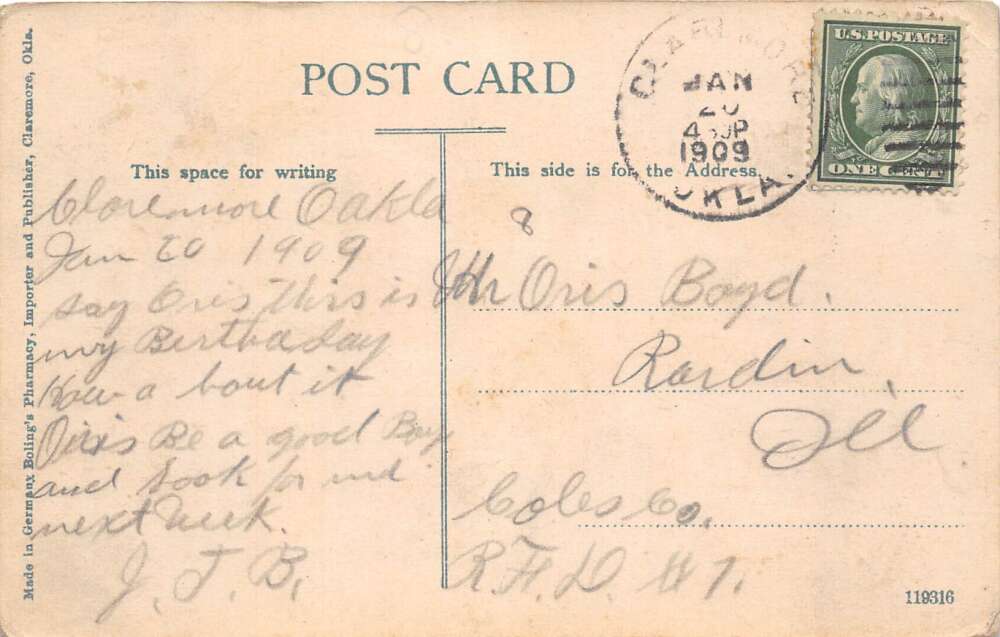 POST CARD
This space for writing
This side is for the Address.
Made in Germany Boling's Pharmacy, Importer and Publisher, Claremore, Okla.
CLAREMORE
JAN
20
4 30P
1909
OKLA.
U.S. POSTAGE
ONE CENT
Claremore Oakla
Jan 20 1909
say Oris this is
my Berthaday
How a bout it
Oris Be a good Boy
and look for me
next week.
J. T. B.
8
Mr Oris Boyd.
Rardin,
Ill
Coles Co,
R. F. D. #1.
119316